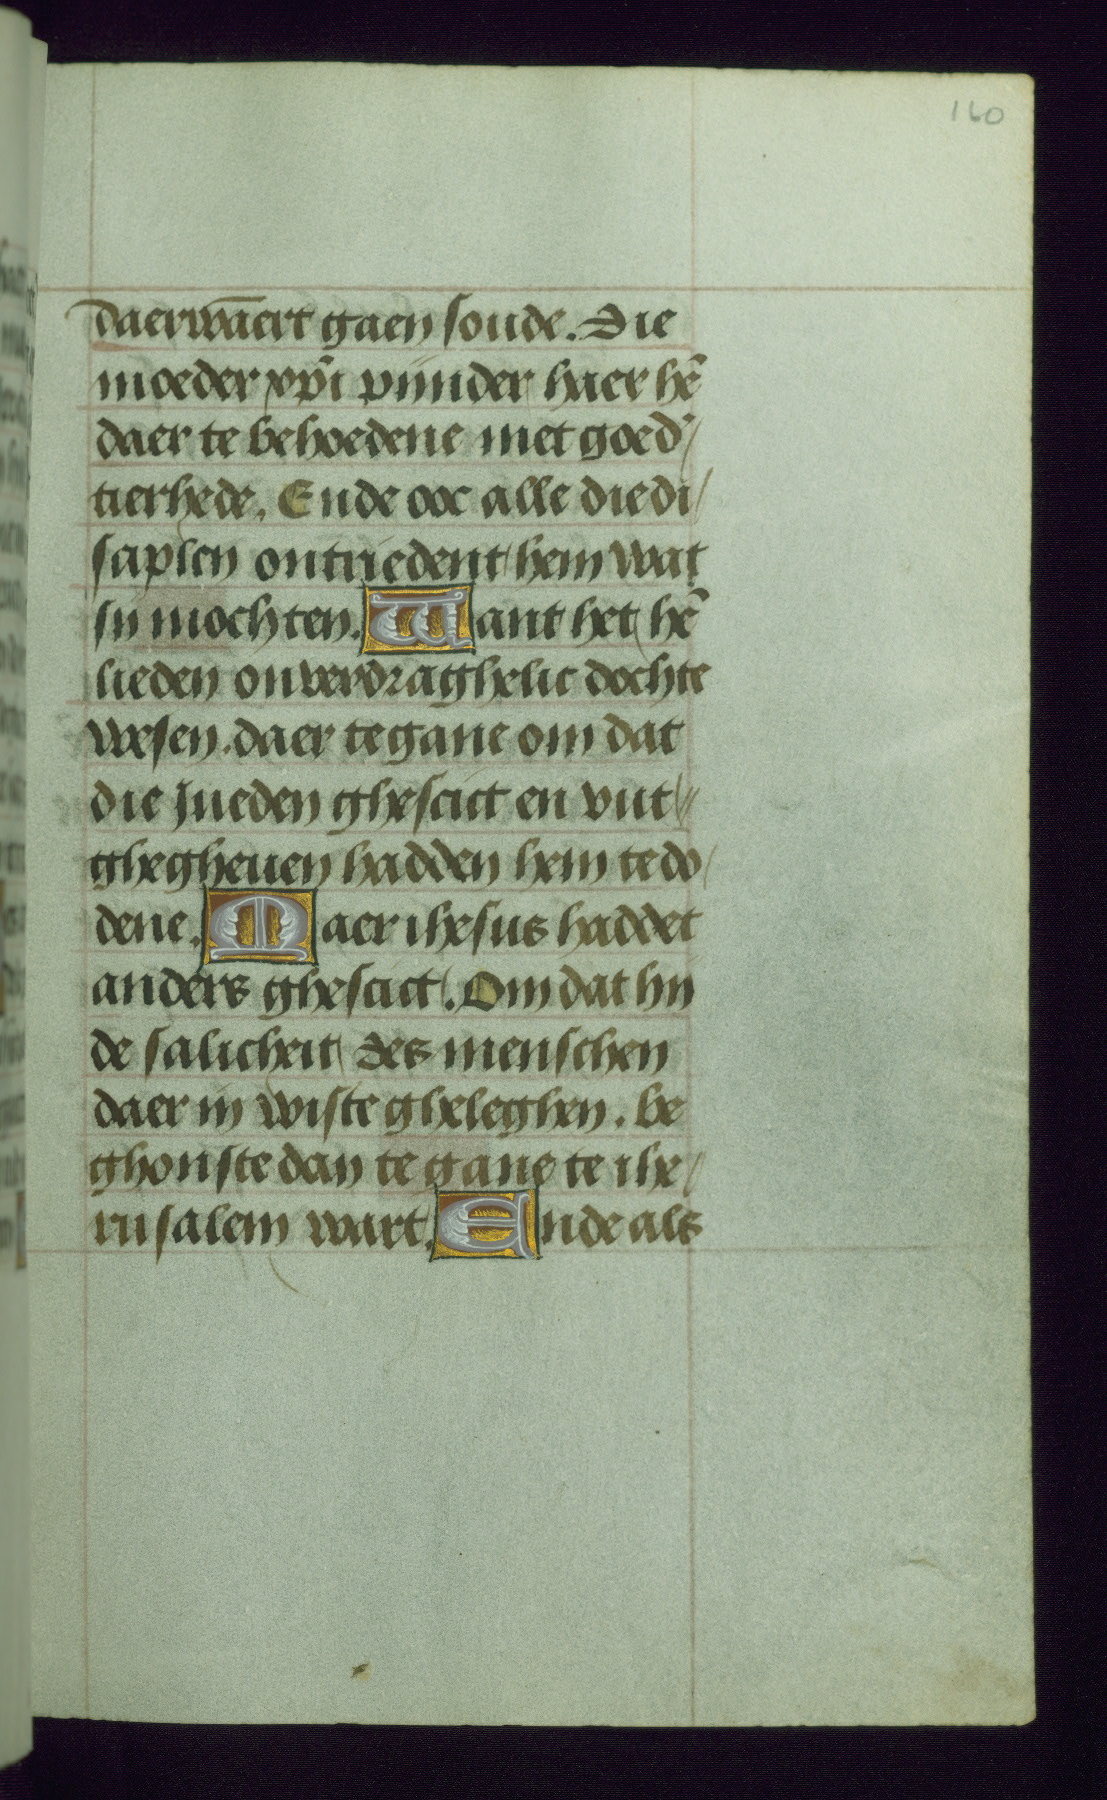 160
daerwaert gaen soude. Die
moeder xp̄i pijnder haer hē
daer te behoedene met goed᾿/
tierhede. Ende ooc alle die di/
saplen ontriedent hem wat
sij mochten. Want het hē
lieden onverdraghelic dochte
wesen. daer te gane om dat
die Jueden ghescict en vut//
ghegheuen hadden hem te do/
dene. Maer ihesus haddet
anders ghescict. Om dat hij
de salicheit des menschen
daer in wiste gheleghen. be
ghonste dan te gane te ihe/
rusalem wart. Ende als